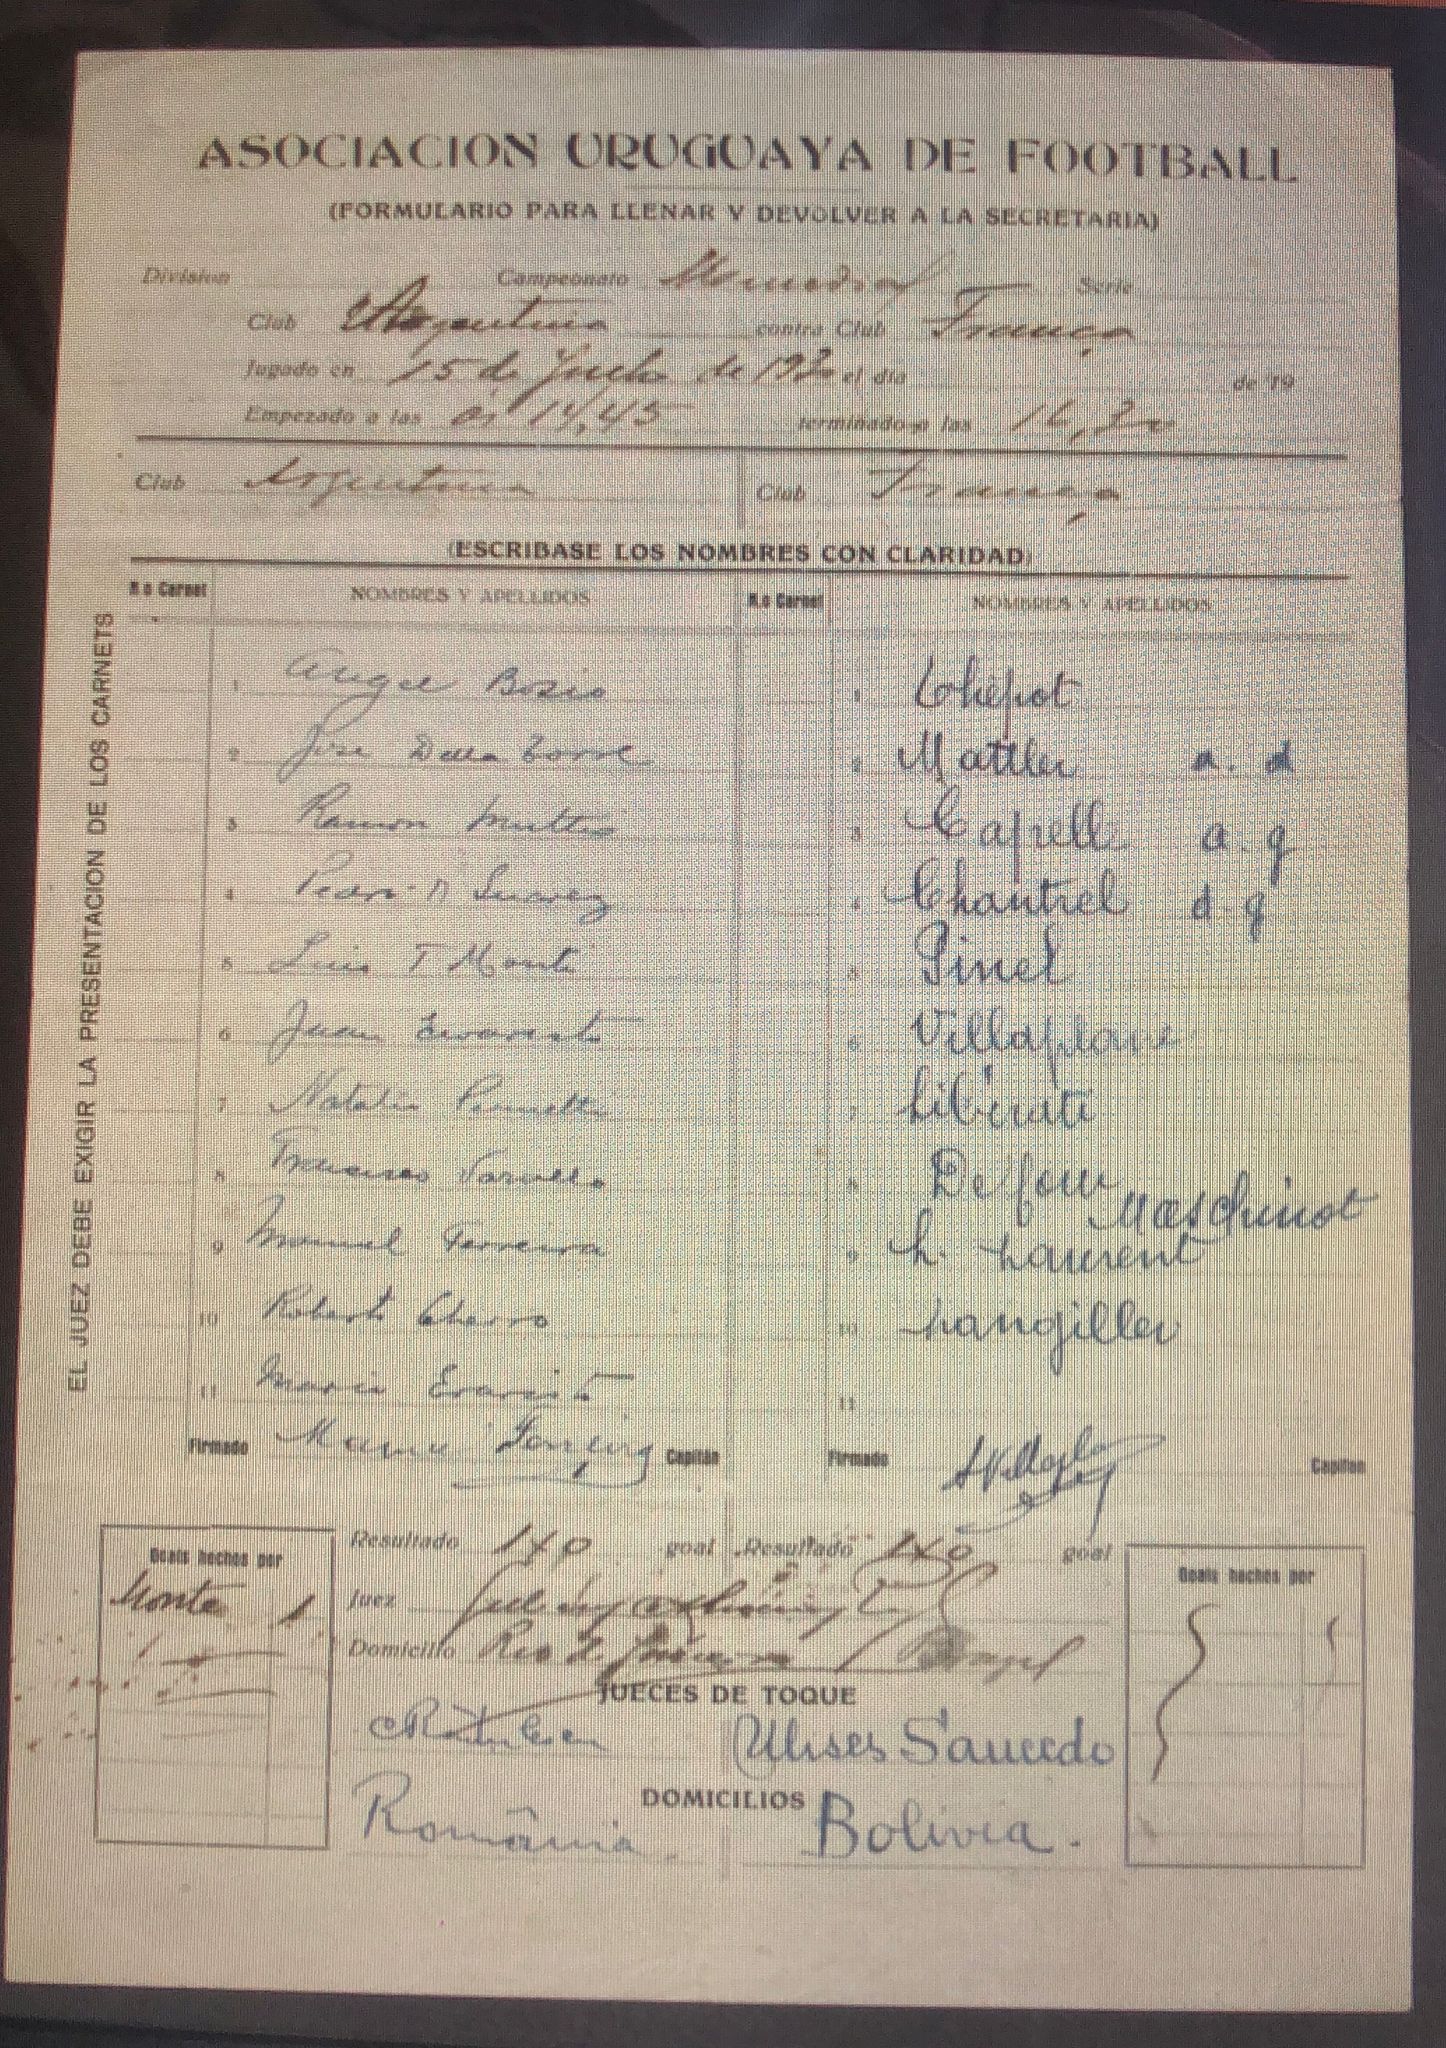 ASOCIACION URUGUAYA DE FOOTBALL
(FORMULARIO PARA LLENAR Y DEVOLVER A LA SECRETARIA)
Division Campeonato Mundial Serie
Club Argentina contra Club França
Jugado en 15 de Julho de 1930 el dia de 19
Empezado a las 14,45 terminado a las
Club Argentina Club França
(ESCRIBASE LOS NOMBRES CON CLARIDAD)
N.o Carnet NOMBRES Y APELLIDOS N.o Carnet NOMBRES Y APELLIDOS
EL JUEZ DEBE EXIGIR LA PRESENTACION DE LOS CARNETS
1 Angel Bosio 1 Thépot
2 Jose Della Torre 2 Mattler a. d
3 Ramon Muttis 3 Capelle a. g
4 Suarez 4 Chantrel d. g
5 Luis F Monti 5 Pinel
6 Juan Evaristo 6 Villaplane
7 Natalio 7 Libérati
8 Francisco Varallo 8 Delfour Maschinot
9 Manuel Ferreira 9 L. Laurent
10 Roberto Cherro 10 Langiller
11 Mario Evaristo 11
Firmado Capitán Firmado Capitán
Goals hechos por Resultado 1x0 goal Resultado 1x0 goal Goals hechos por
Monte 1 Juez
Domicilio Rio de Janeiro / Brazil
JUECES DE TOQUE
Ulises Saucedo
DOMICILIOS
România. Bolivia.